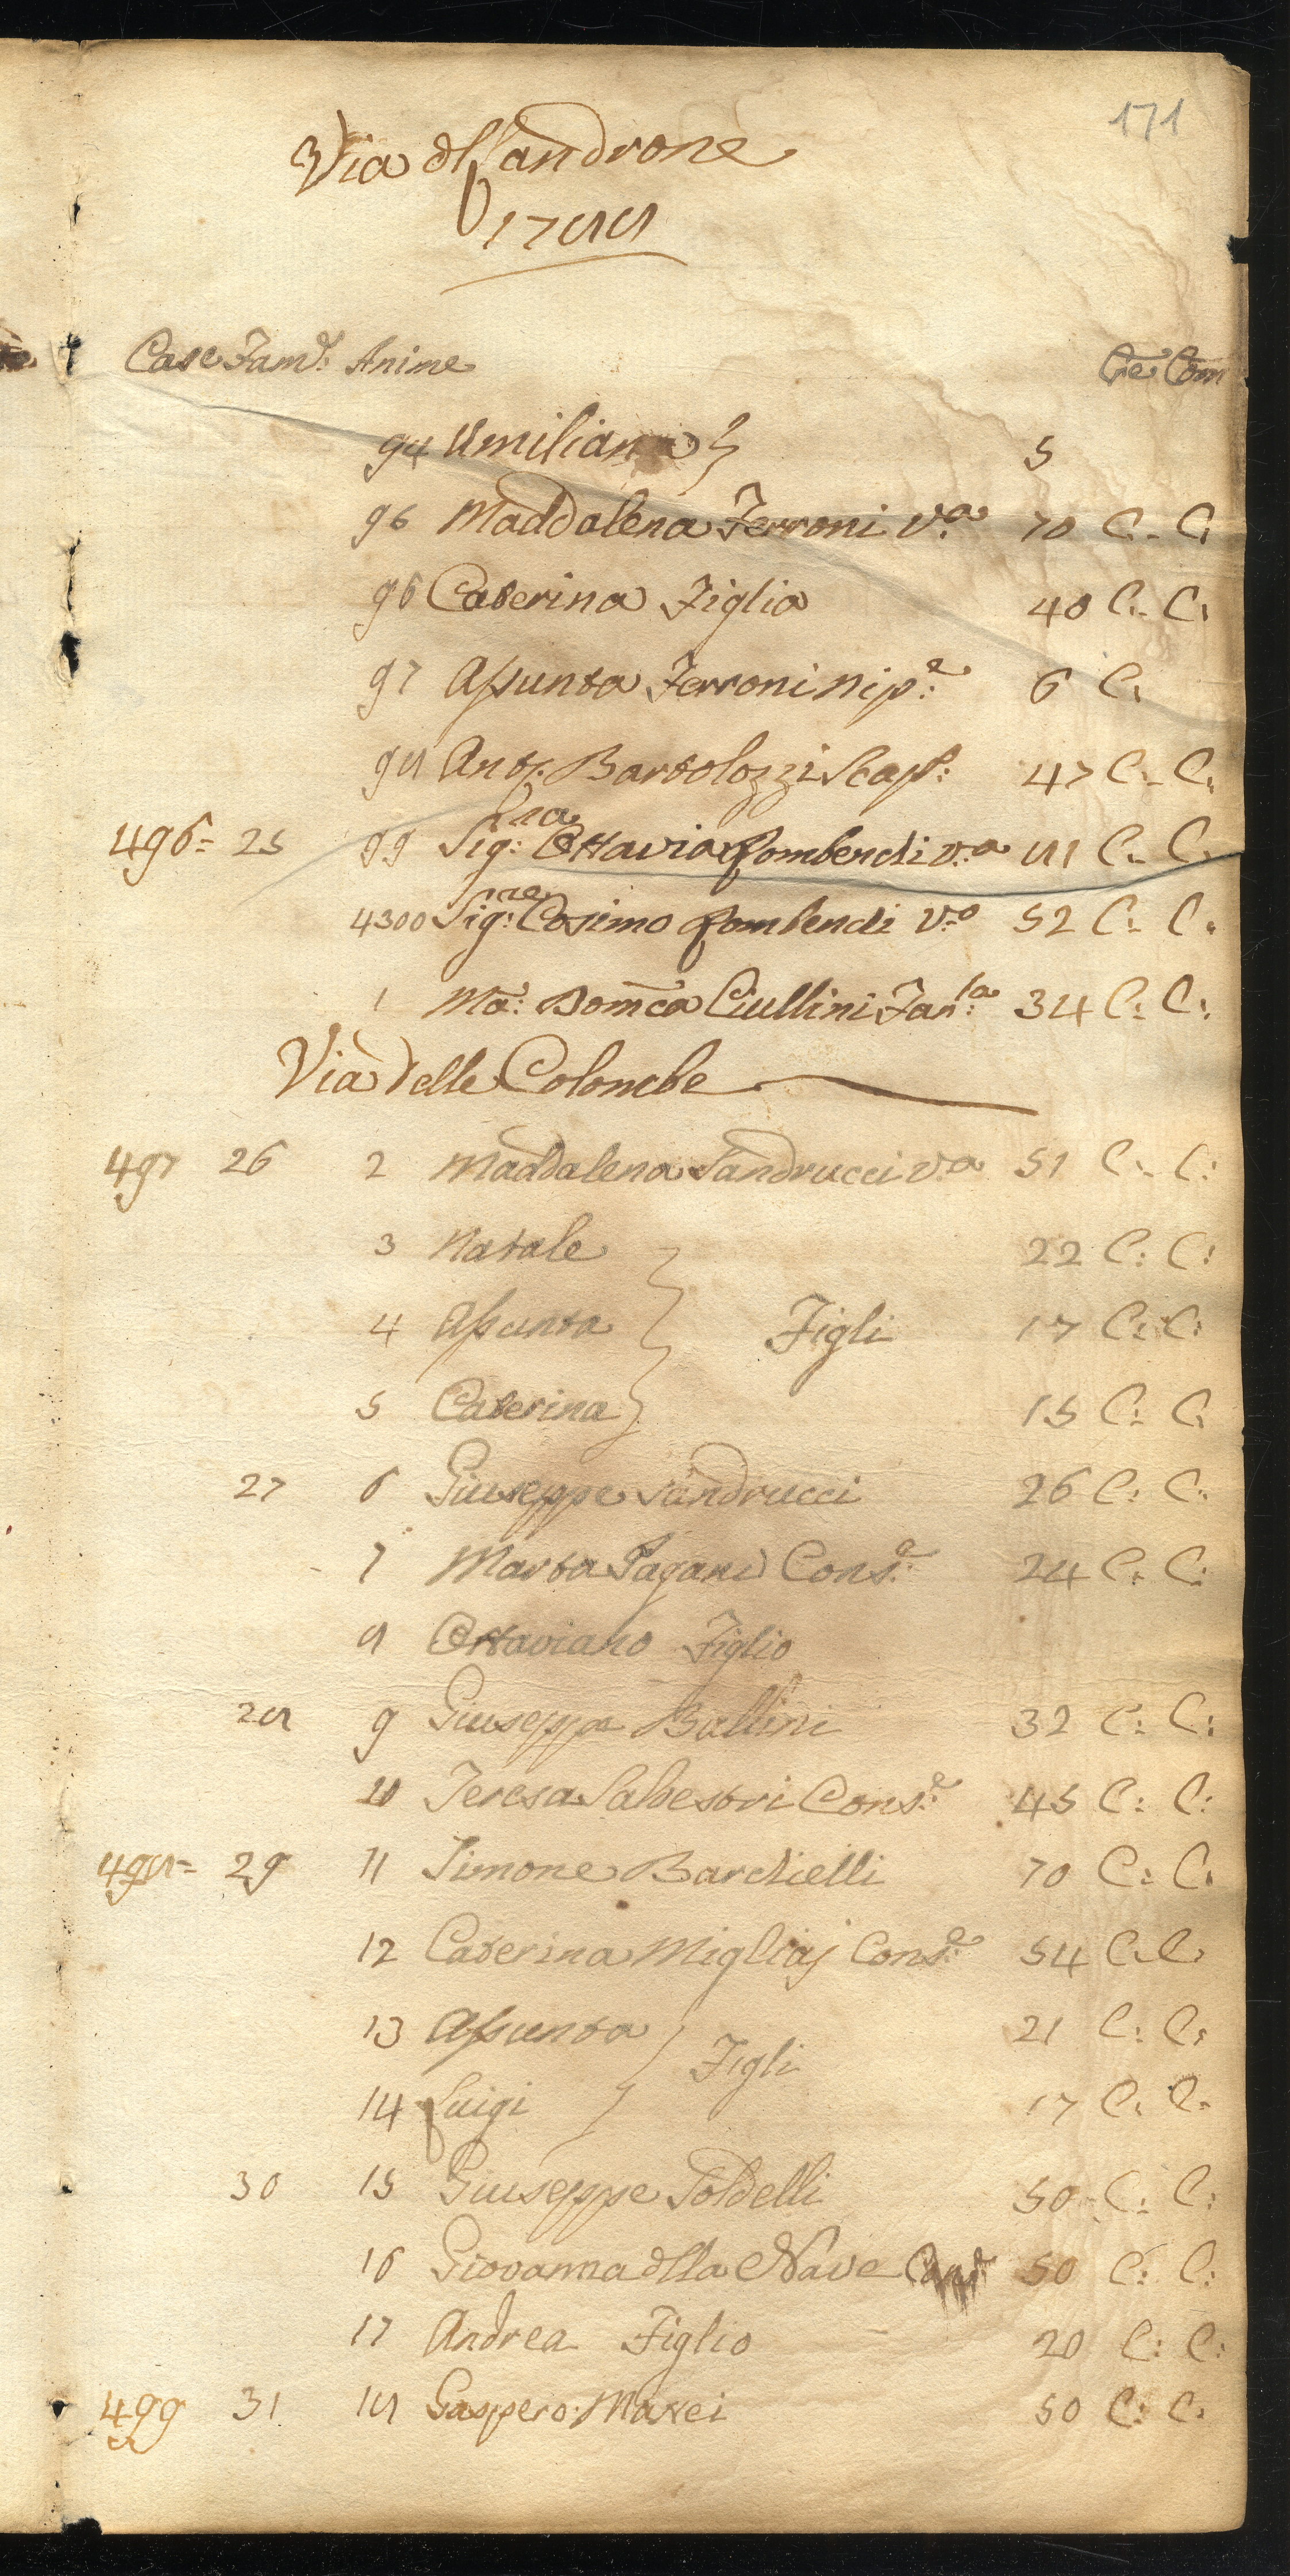 171
Via dlSandrone
1788
Case Fam.e Anime Cre Com
94 Umiliana } 5
96 Maddalena Ferroni v.a 70 C. C.
96 Caterina Figlia 40 C. C.
97 Assunta Ferroni nip.e 6 C.
98 Ant. Bartolozzi Scap.: 47 C. C.
496= 25 99 Sig.ra Ottavia Lombendi v.a 81 C. C.
4300 Sig.re Cosimo Lombendi v.o 52 C. C.
1 Ma: Domca Ciullini Fan.la 34 C. C.
Via delle Colombe
497 26 2 Maddalena Sandrucci v.a 51 C. C:
3 Natale } 22 C: C:
4 Assunta } Figli 17 C: C:
5 Caterina } 15 C: C.
27 6 Giuseppe Sandrucci 26 C: C:
7 Marta Pagani Cons.e 24 C. C:
8 Ottaviano Figlio
28 9 Giuseppe Ballini 32 C: C:
10 Teresa Salvestri Cons.e 45 C: C:
498= 29 11 Simone Bardielli 70 C: C.
12 Caterina Migliaj Cons.e 54 C. C.
13 Assunta } Figli 21 C: C:
14 Luigi } 17 C. C.
30 15 Giuseppe Soldelli 50 C: C:
16 Giovanna dlla Nave 50 C: C:
17 Andrea Figlio 20 C: C:
499 31 18 Gaspero Masei 50 C: C: